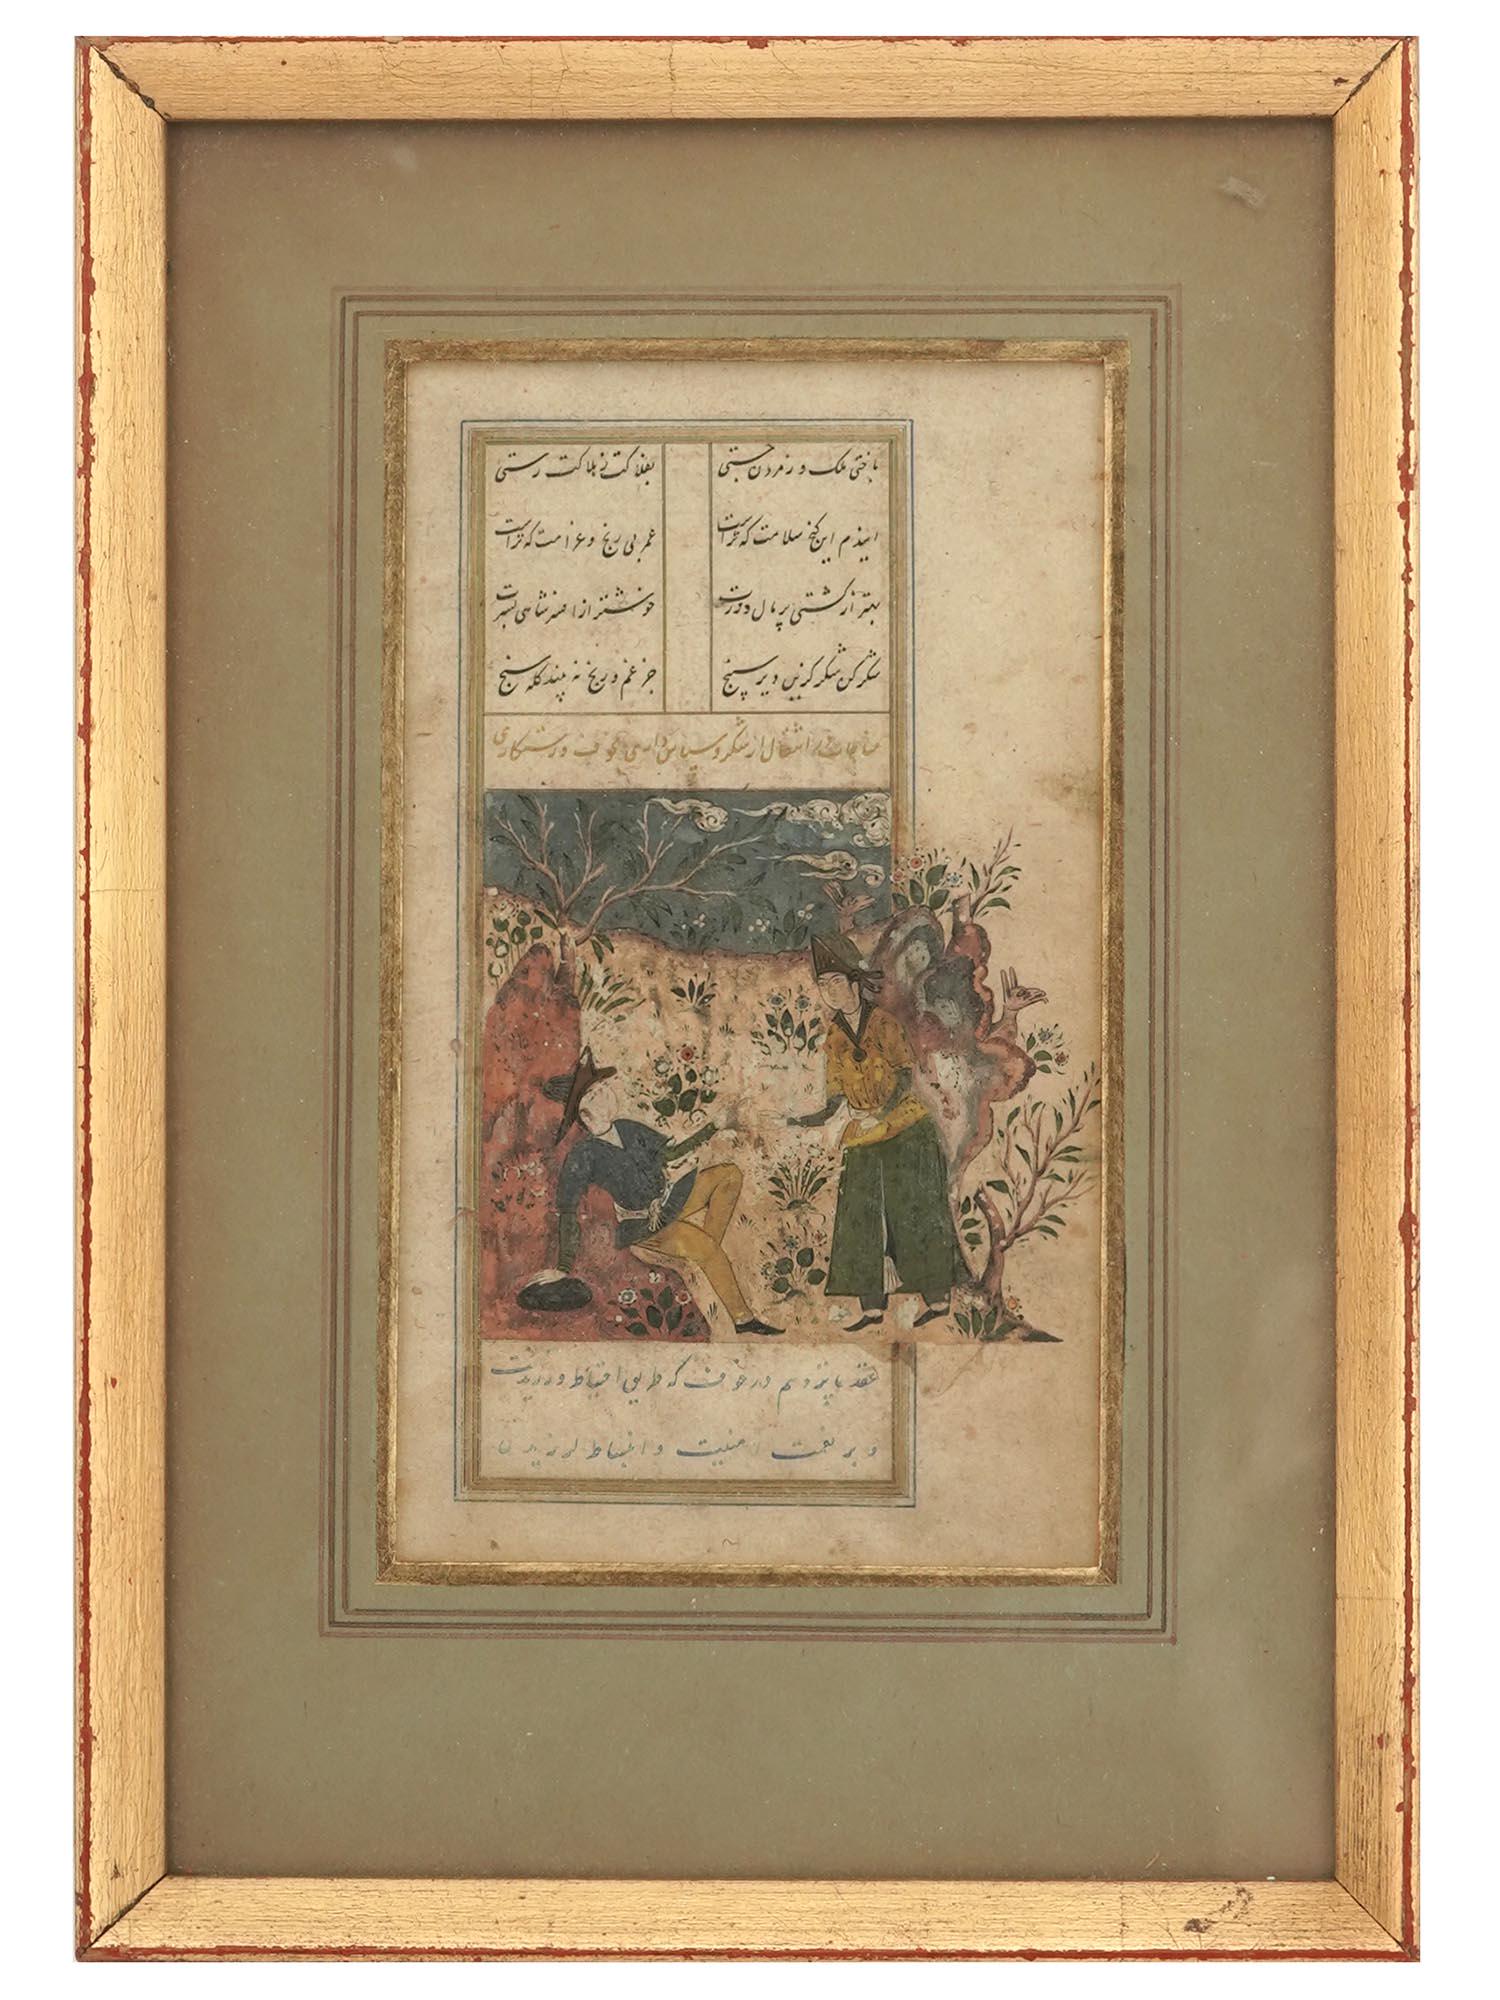 باختی ملک و ز مردن جستی بفلاکت ز هلاکت رستی
این کنج سلامت که تراست عمر بی رنج و غرامت که تراست
بهتر از کشتی پر مال و درت خوشتر از افسر شاهی بسرت
شکر کن شکر کزین دیر سپنج جز غم و رنج نه بیند سنج
مناجات در انتقال از شکر و سپاس داری بخوف و رستکاری
عقد پانزدهم در خوف که طریق احتیاط ورزیدنست
و بر نعمت امنیت و انبساط لرزیدن